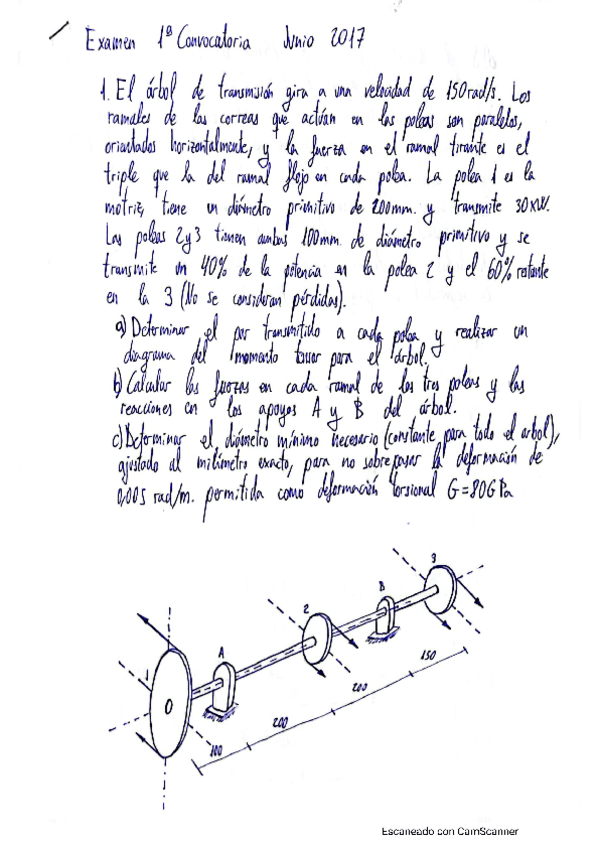 Examen 1ª Convocatoria Junio 2017
1. El árbol de transmisión gira a una velocidad de 150rad/s. Los
ramales de las correas que actúan en las poleas son paralelos,
orientados horizontalmente, y la fuerza en el ramal tirante es el
triple que la del ramal flojo en cada polea. La polea 1 es la
motriz, tiene un diámetro primitivo de 200mm. y transmite 30KW.
Las poleas 2y3 tienen ambas 100mm. de diámetro primitivo y se
transmite un 40% de la potencia en la polea 2 y el 60% restante
en la 3 (No se consideran pérdidas).
a) Determinar el par transmitido a cada polea y realizar un
diagrama del momento torsor para el árbol.
b) Calcular las fuerzas en cada ramal de las tres poleas y las
reacciones en los apoyos A y B del árbol.
c) Determinar el diámetro mínimo necesario (constante para todo el arbol),
ajustado al milímetro exacto, para no sobrepasar la deformación de
0,005 rad/m. permitida como deformación torsional G=80GPa
3
B
2
A
1
150
200
200
100
Escaneado con CamScanner